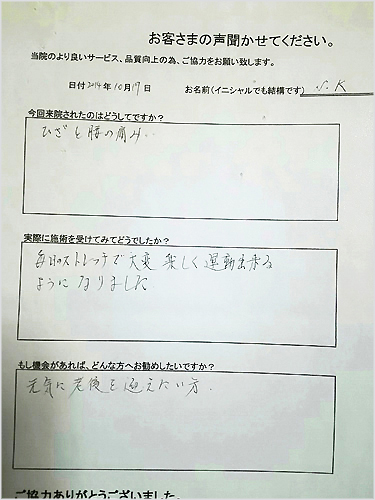 お客さまの声聞かせてください。
当院のより良いサービス、品質向上の為、ご協力をお願い致します。
日付2014年10月17日　お名前(イニシャルでも結構です) S.K
今回来院されたのはどうしてですか？
ひざと腰の痛み..
実際に施術を受けてみてどうでしたか？
毎日のストレッチで大変 楽しく 運動出来る
ようになりました
もし機会があれば、どんな方へお勧めしたいですか？
元気に老後を迎えたい方.
ご協力ありがとうございました。